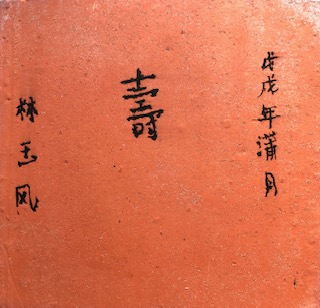 戊戌年蒲月
壽
林玉风